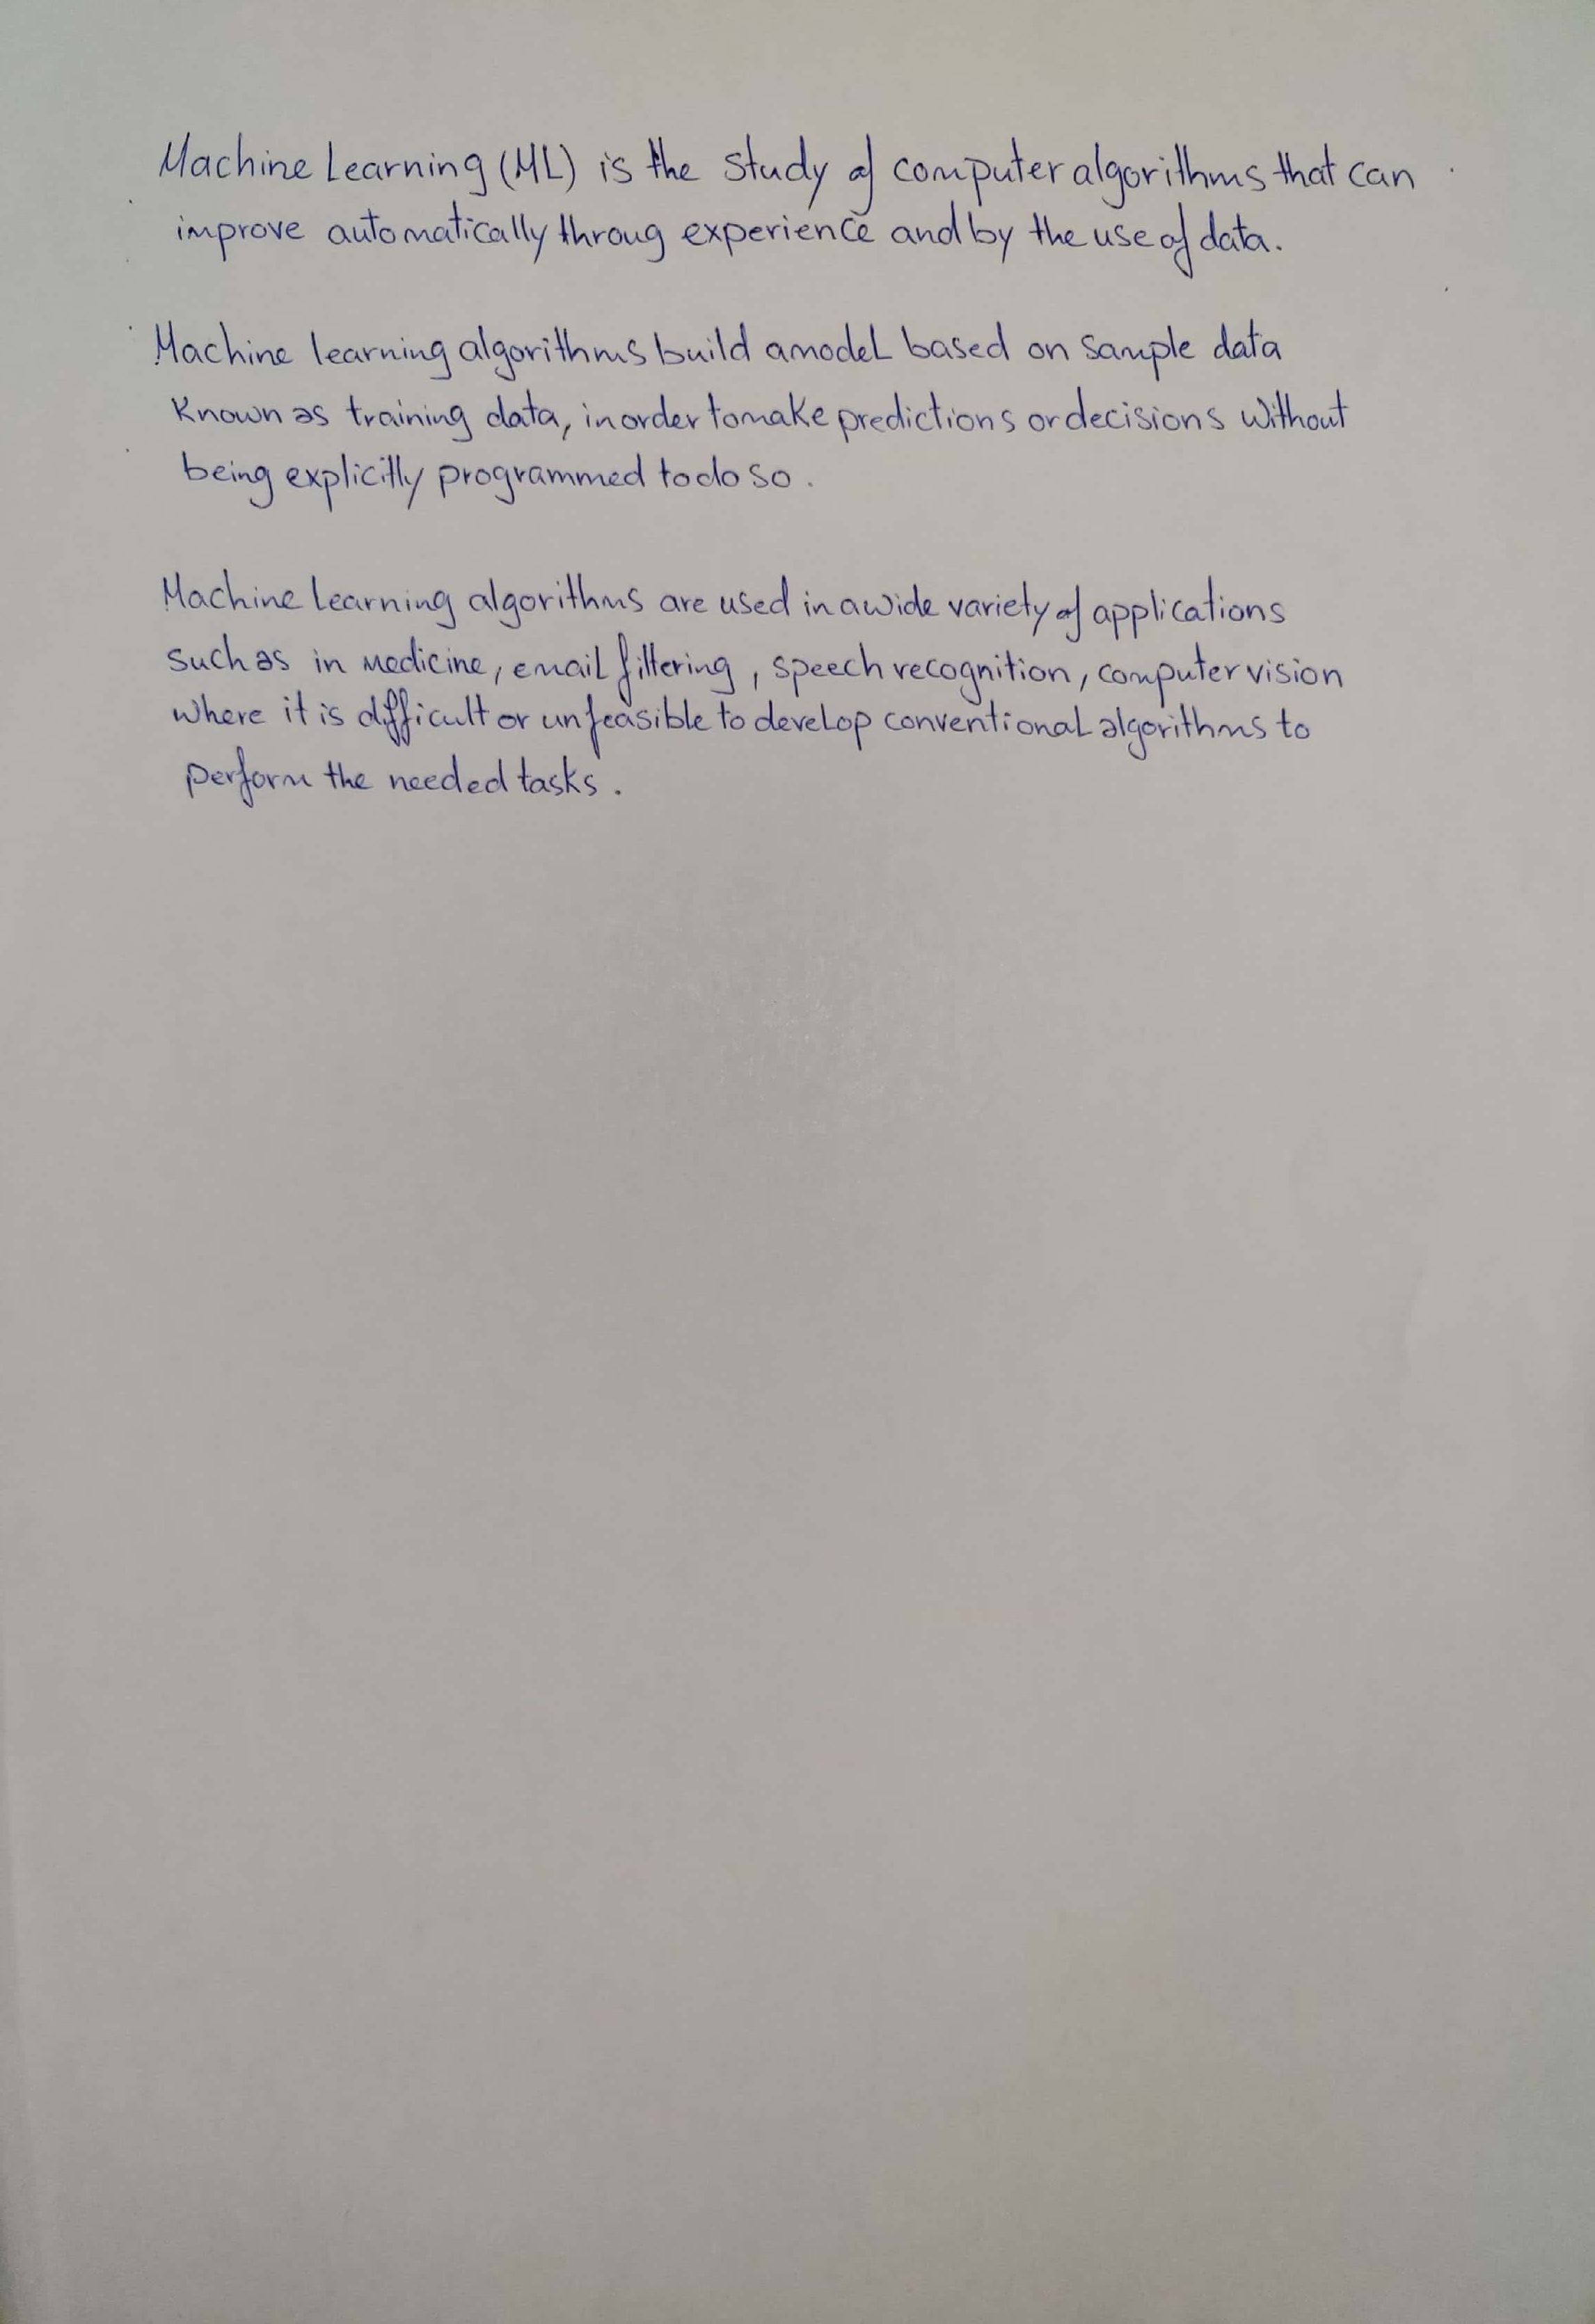 Machine Learning (ML) is the study of computer algorithms that can
improve automatically throug experience and by the use of data.
Machine learning algorithms build a model based on sample data
known as training data, in order to make predictions or decisions without
being explicitly programmed to do so.
Machine learning algorithms are used in a wide variety of applications
such as in medicine, email filtering, speech recognition, computer vision
where it is difficult or unfeasible to develop conventional algorithms to
perform the needed tasks.